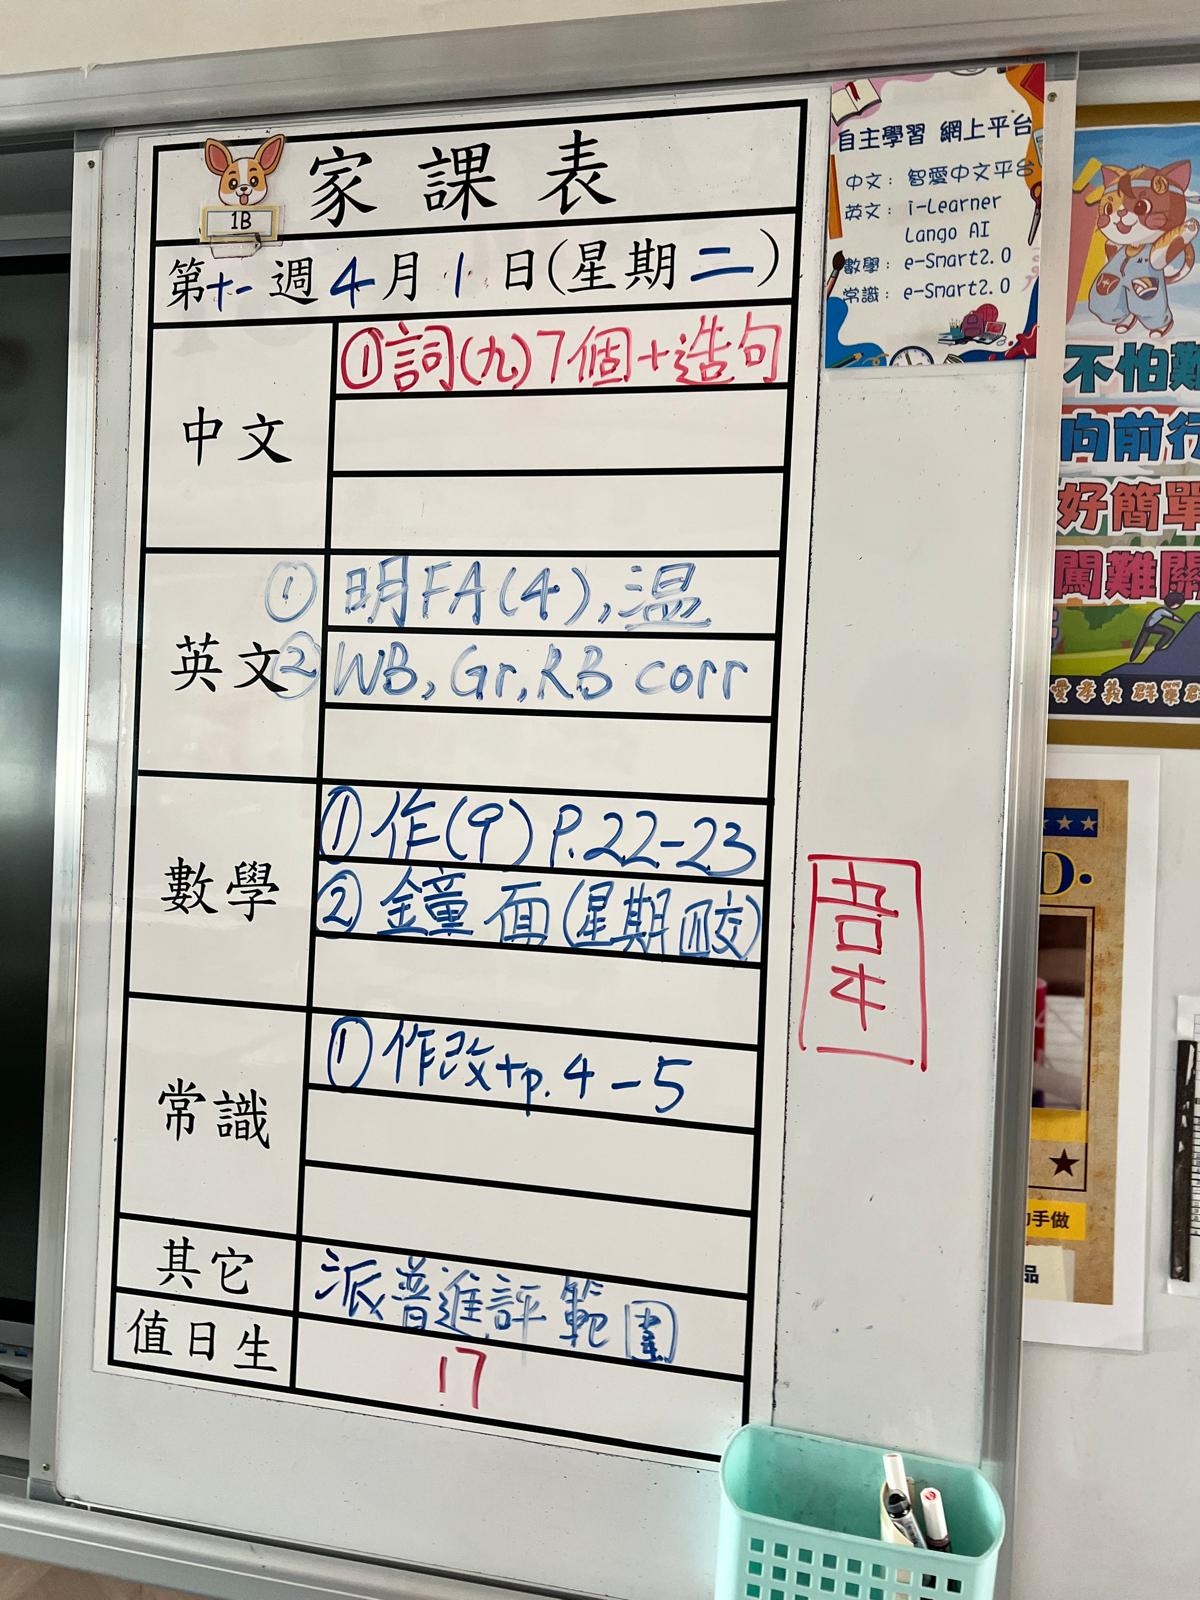 家課表
1B
第十一週4月1日(星期二)
中文
①詞(九)7個+造句
英文
①明FA(4),溫
②WB,Gr,RB corr
數學
①作(9) P.22-23
②鐘面(星期四交)
常識
①作改+p.4-5
其它
派普進評範圍
值日生
17
自主學習 網上平台
中文:智愛中文平台
英文:i-Learner
Lango AI
數學:e-Smart2.0
常識:e-Smart2.0
不怕難
向前行
好簡單
闖難關
愛孝義 群策
D.
手做
品